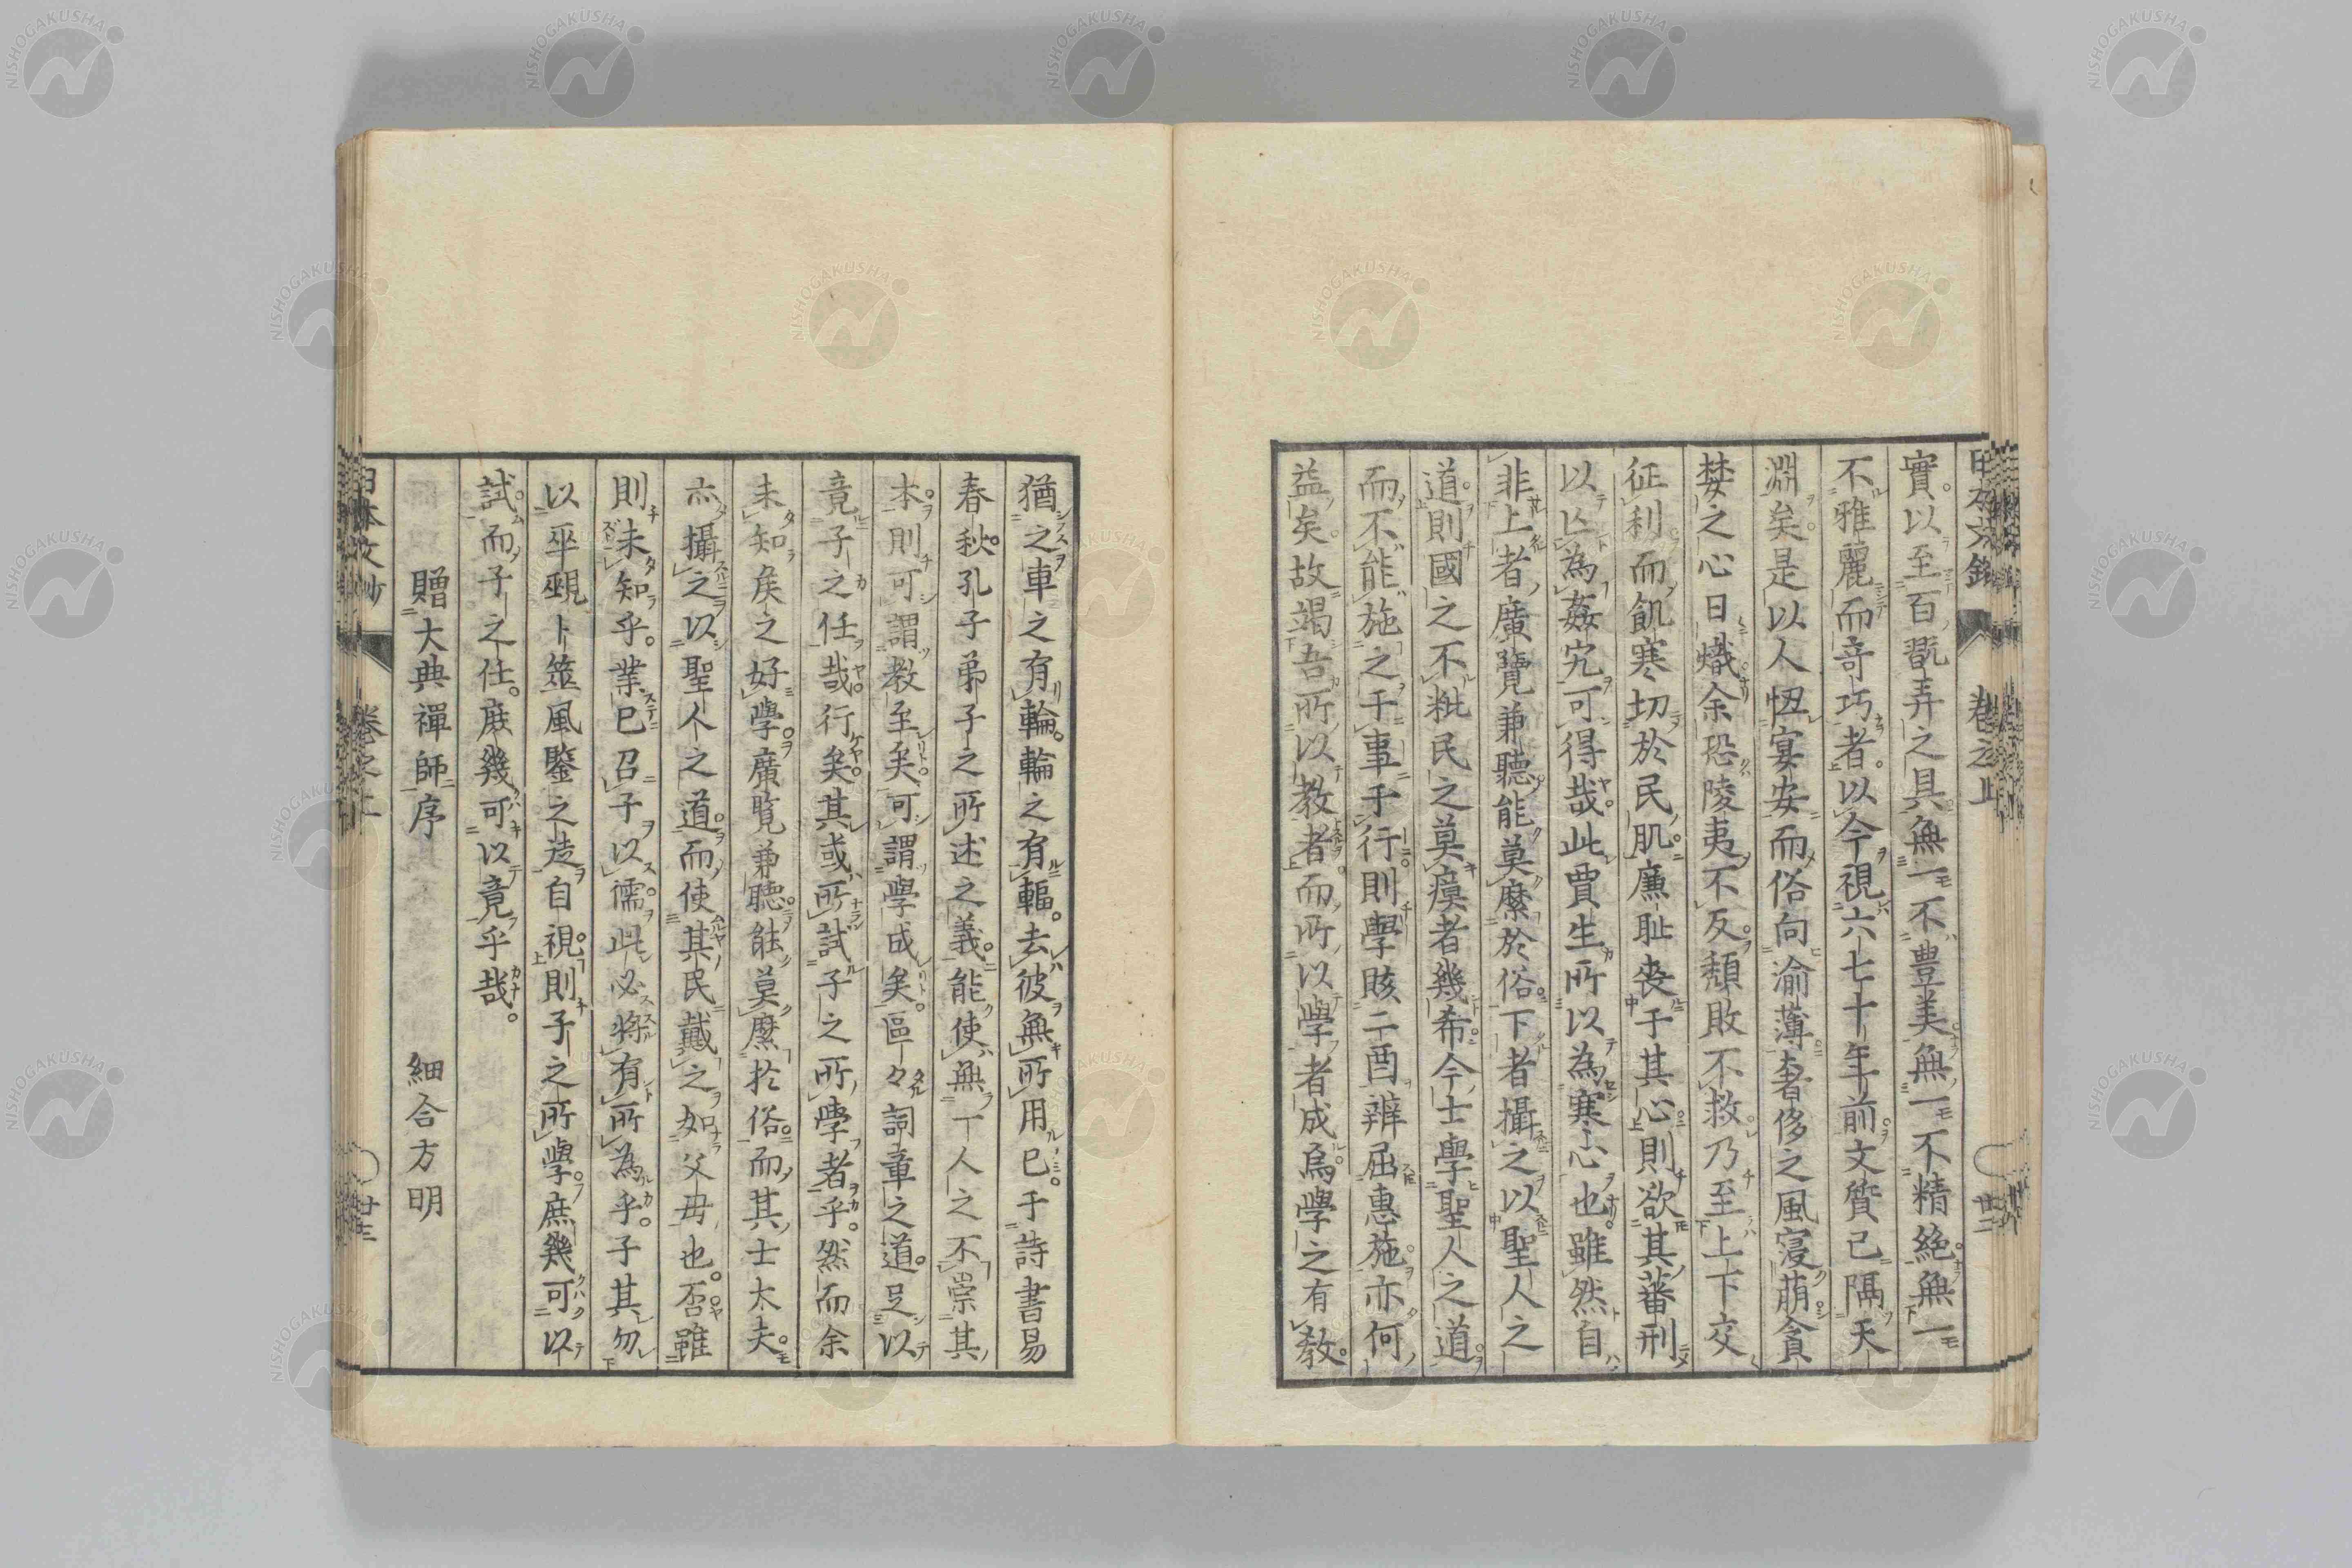 實以至百翫弄之具無一不豊美無一不精絶無一
不雅麗而竒巧者以今視六七十年前文質已隔天
淵矣是以人忸宴安而俗向渝薄奢侈之風寖萠貪
婪之心日熾余恐陵夷不反頽敗不救乃至上下交
征利而飢寒切於民肌廉耻喪于其心則欲其蕃刑
以亾為姦宄可得哉此賈生所以為寒心也雖然自
非上者廣覽兼聽能莫縻於俗下者攝之以聖人之
道則國之不粃民之莫瘼者幾希今士學聖人之道
而不能施之于事于行則學賅二酉辨屈惠施亦何
益矣故竭吾所以教者而所以學者成焉學之有教
猶之車之有輪輪之有輻去彼無所用已于詩書易
春秋孔子弟子之所述之義能使無丁人之不崇其
本則可謂教至矣可謂學成矣區々詞章之道足以
竟子之任哉行矣其或所試子之所學者乎然而余
未知矦之好學廣覧兼聽能莫縻扵俗而其士太夫
亦攝之以聖人之道而使其民戴之如父毋也否雖
則未知乎業已召子以儒此必將有所為乎子其勿
以巫覡卜筮風鑒之造自視則子之所學庶幾可以
試而子之任庶幾可以竟乎哉
贈大典禪師序 細合方明
卷之上
廿二
廿三
NISHOGAKUSHA